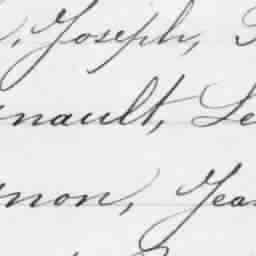 , Joseph,
nault, Le
non, Jea